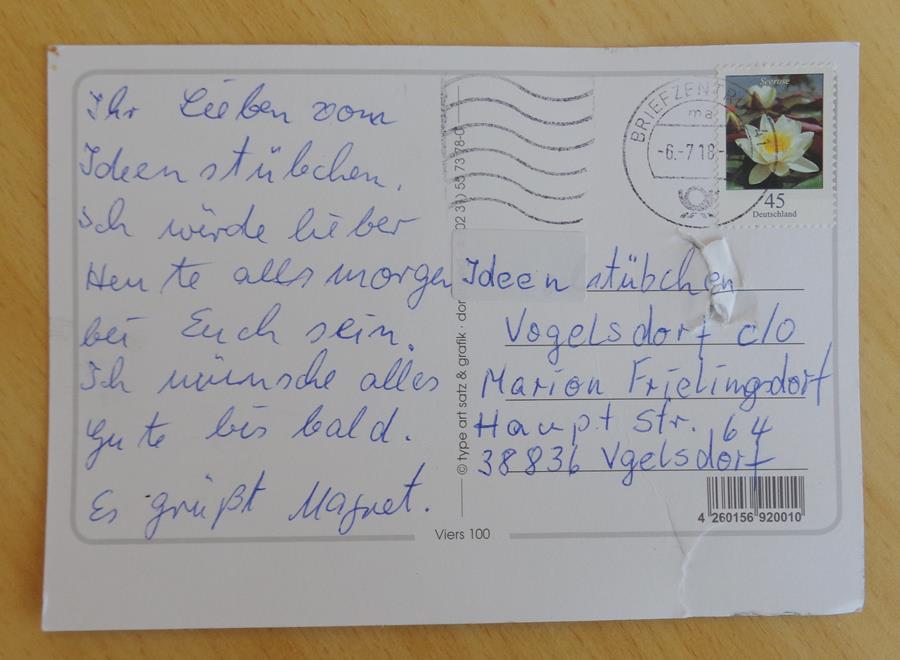 Ihr Lieben vom
Ideenstübchen.
Ich würde lieber
Heute alls morgen
bei Euch sein.
Ich wünsche alles
Gute bis bald.
Es grüßt Magnet.
© type art satz & grafik · dor
02 31) 55 73 78-0
BRIEFZENTRUM
ma
-6.-7.18-
41
Seerose
45
Deutschland
Ideenstübchen
Vogelsdorf c/o
Marion Frielingsdorf
Haupt Str. 64
38836 Vgelsdorf
4 260156 920010
Viers 100